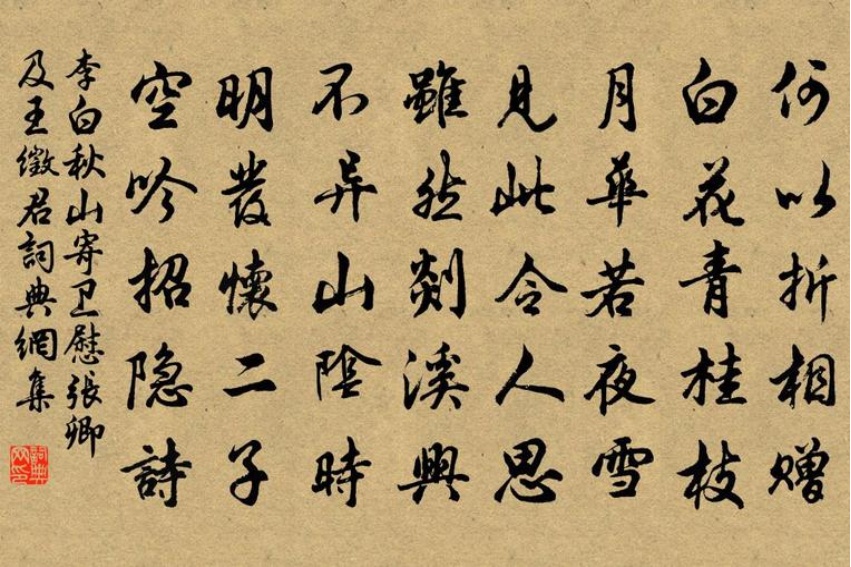 何以折相赠
白花青桂枝
月華若夜雪
見此令人思
雖然剡溪興
不异山陰時
明發懷二子
空吟招隐詩
李白秋山寄卫慰張卿
及王徵君詞典網集
詞典网印